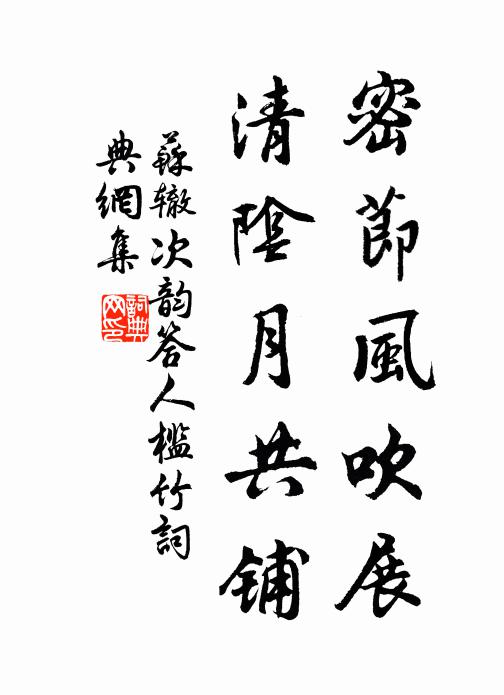 密節風吹展
清陰月共铺
蘇辙次韵答人槛竹詞
典網集
詞典网印